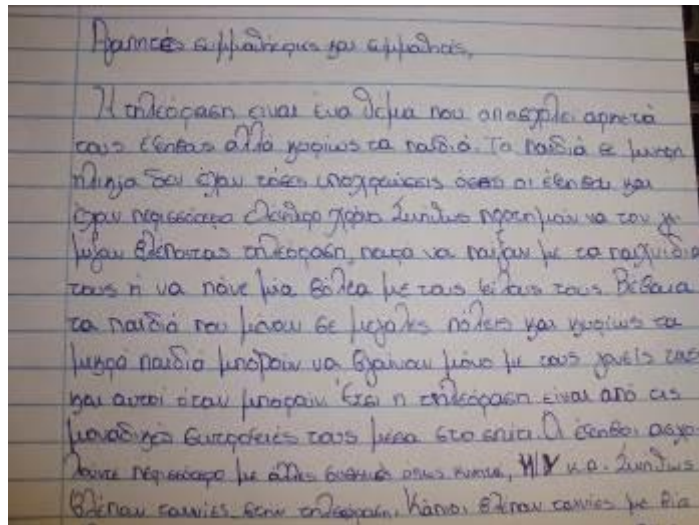 Αγαπητές συμμαθήτριες και συμμαθητές,
Η τηλεόραση ειναι ένα θέμα που απασχολεί αρκετά
τους έφηβους αλλά κυρίως τα παιδιά. Τα παιδιά σε μικρη
ηλικία δεν έχουν τόσες υποχρεώσεις όσες οι έφηβοι και
έχουν περισσότερο ελεύθερο χρόνο. Συνήθως προτιμούν να τον γε
μίζουν βλέποντας τηλεόραση, παρά να παίζουν με τα παιχνίδια
τους ή να πάνε μία βόλτα με τους φίλους τους. Βέβαια
τα παιδιά που μένουν σε μεγάλες πόλεις και κυρίως τα
μικρά παιδιά μπορούν να βγαίνουν μόνο με τους γονείς τους
και αυτοί όταν μπορούν. Έτσι η τηλεόραση είναι από τις
μοναδικές συντροφιές τους μεσα στο σπίτι. Οι έφηβοι ασχο
λούντε περισσότερο με άλλες συσκευές όπως κινητά, Η/Υ κ.α. Συνήθως
βλέπουν ταινίες στην τηλεόραση. Κάποιοι βλέπουν ταινίες με βια